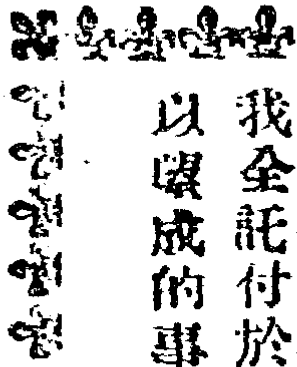 我全託付於
以成的事